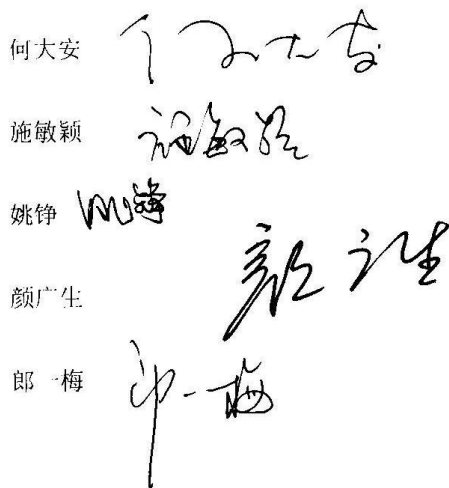 何大安 何大安
施敏颖 施敏颖
姚铮 姚铮
颜广生 颜广生
郎一梅 郎一梅